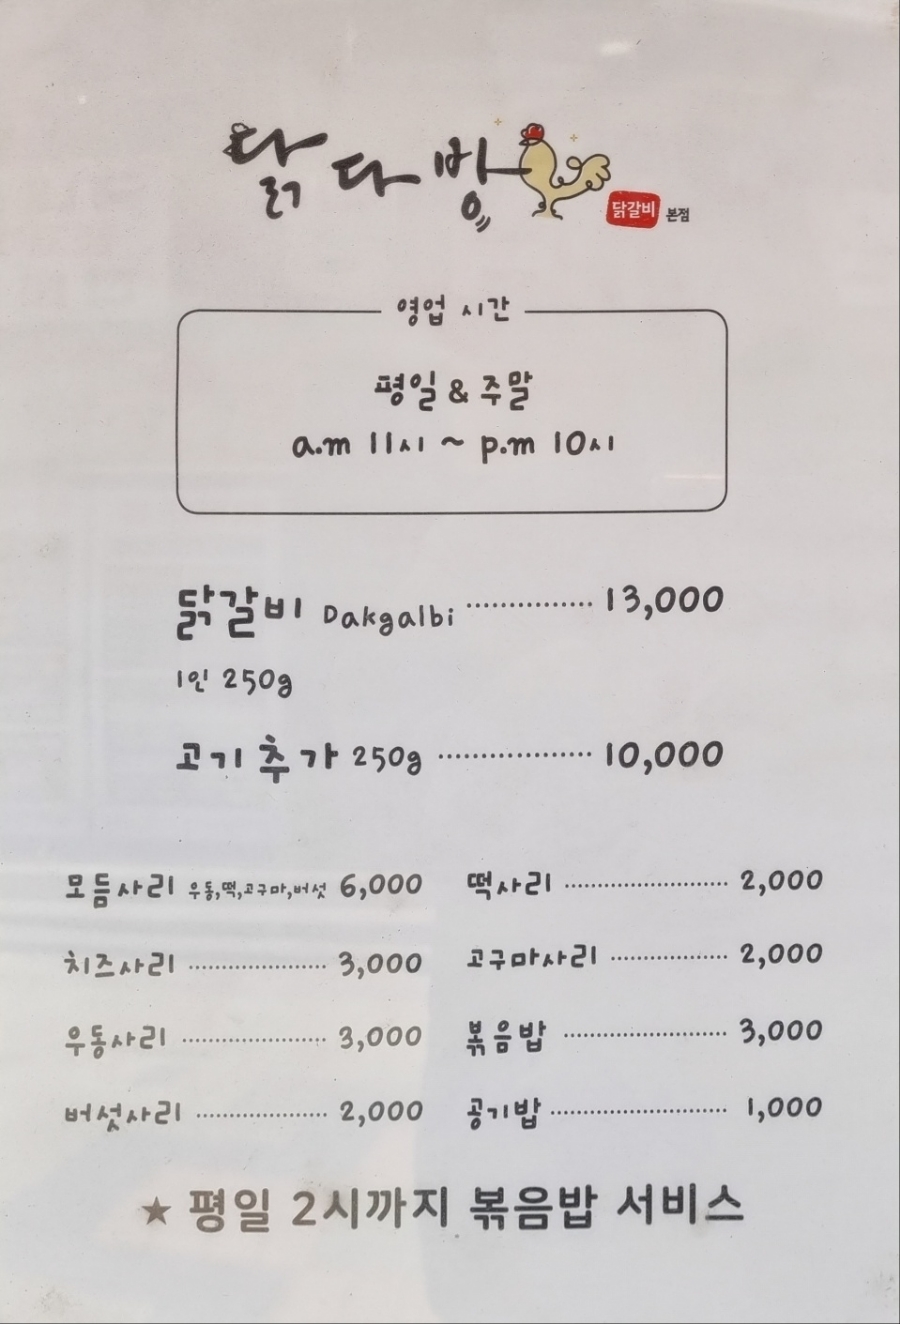 닭다방
닭갈비 본점
영업 시간
평일 & 주말
a.m 11시 ~ p.m 10시
닭갈비 Dakgalbi ............... 13,000
1인 250g
고기 추가 250g .................. 10,000
모듬사리 우동,떡,고구마,버섯 6,000
치즈사리 .................... 3,000
우동사리 .................... 3,000
버섯사리 .................... 2,000
떡사리 ........................ 2,000
고구마사리 ................. 2,000
볶음밥 ........................ 3,000
공기밥 ......................... 1,000
★ 평일 2시까지 볶음밥 서비스